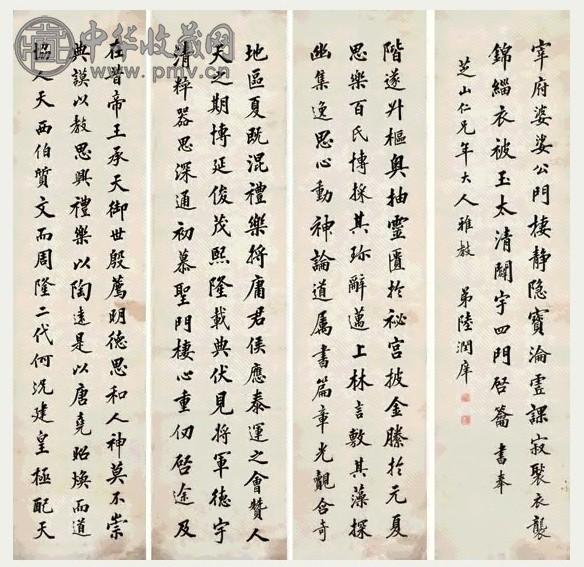 中华收藏网
www.pmv.cn
在昔帝王承天御世殷薦明德思和人神莫不崇
典謨以教思興禮樂以陶遠是以唐堯昭煥而道
協人天西伯質文而周隆二代何況建皇極配天
地區夏既混禮樂將庸君侯應泰運之會贊人
天之期博延俊茂熙隆載典伏見將軍德宇
清粹器思深通初慕聖門棲心重仞啓途及
階遂升樞奧抽靈匱於祕宮披金縢於元夏
思樂百氏博採其珍辭邁上林言敷其藻探
幽集逸思心動神論道屬書篇章光覿含奇
宰府婆娑公門棲靜隱寶淪虛課寂褧衣襲
錦緇衣被玉太清闢宇四門啓籥 書奉
芝山仁兄年大人雅教 弟陸潤庠